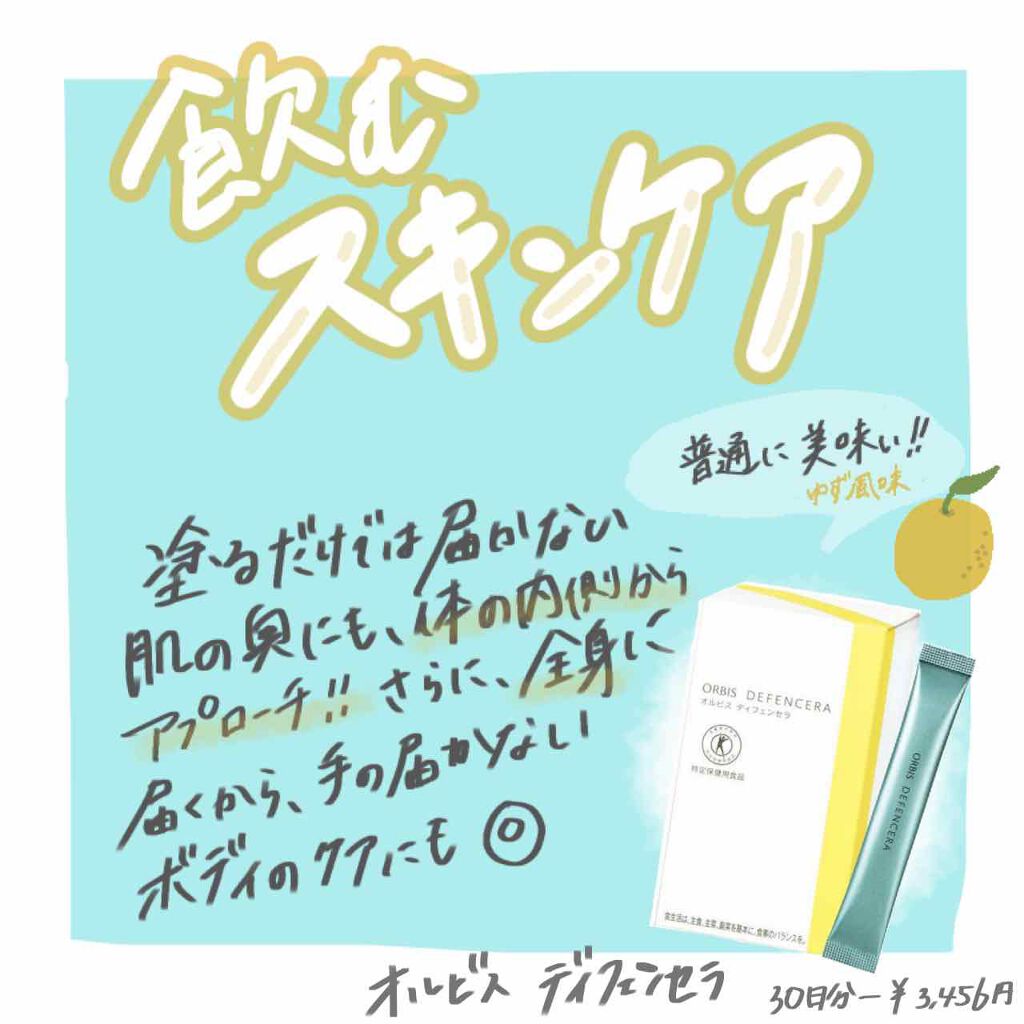 飲む
スキンケア
普通に美味い!!
ゆず風味
塗るだけでは届かない
肌の奥にも、体の内側から
アプローチ!! さらに、全身に
届くから、手の届かない
ボディのケアにも◎
ORBIS DEFENCERA
オルビス ディフェンセラ
特定保健用食品
食生活は、主食、主菜、副菜を基本に、食事のバランスを。
ORBIS DEFENCERA
オルビス ディフェンセラ
30日分ー¥3,456円